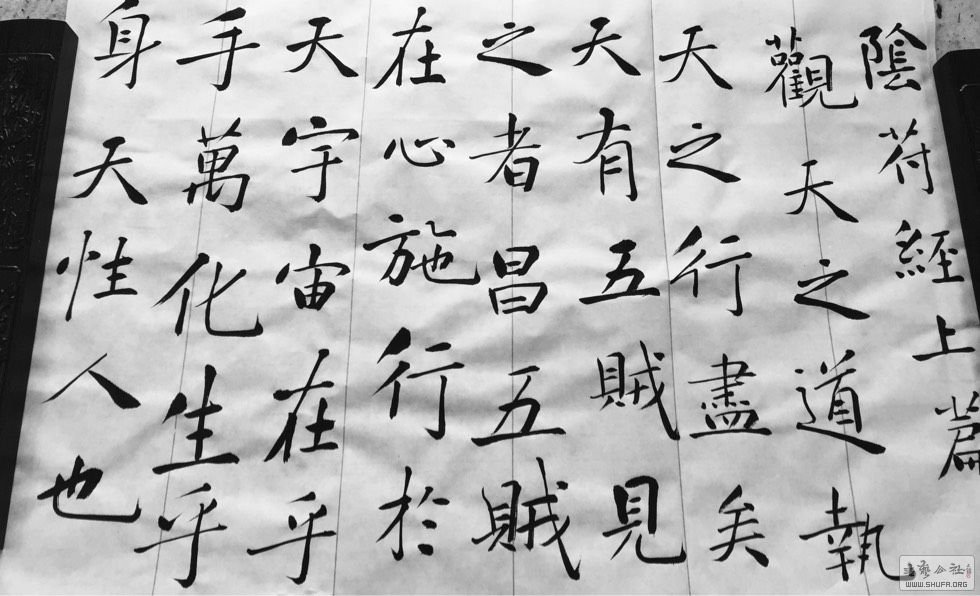 陰符經上篇
觀天之道執
天之行盡矣
天有五賊見
之者昌五賊
在心施行於
天宇宙在乎
手萬化生乎
身天性人也
WWW.SHUFA.ORG